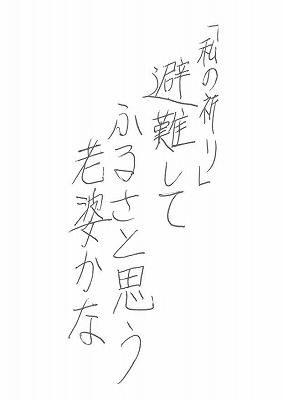 「私の祈り」
避難して
ふるさと思う
老婆かな